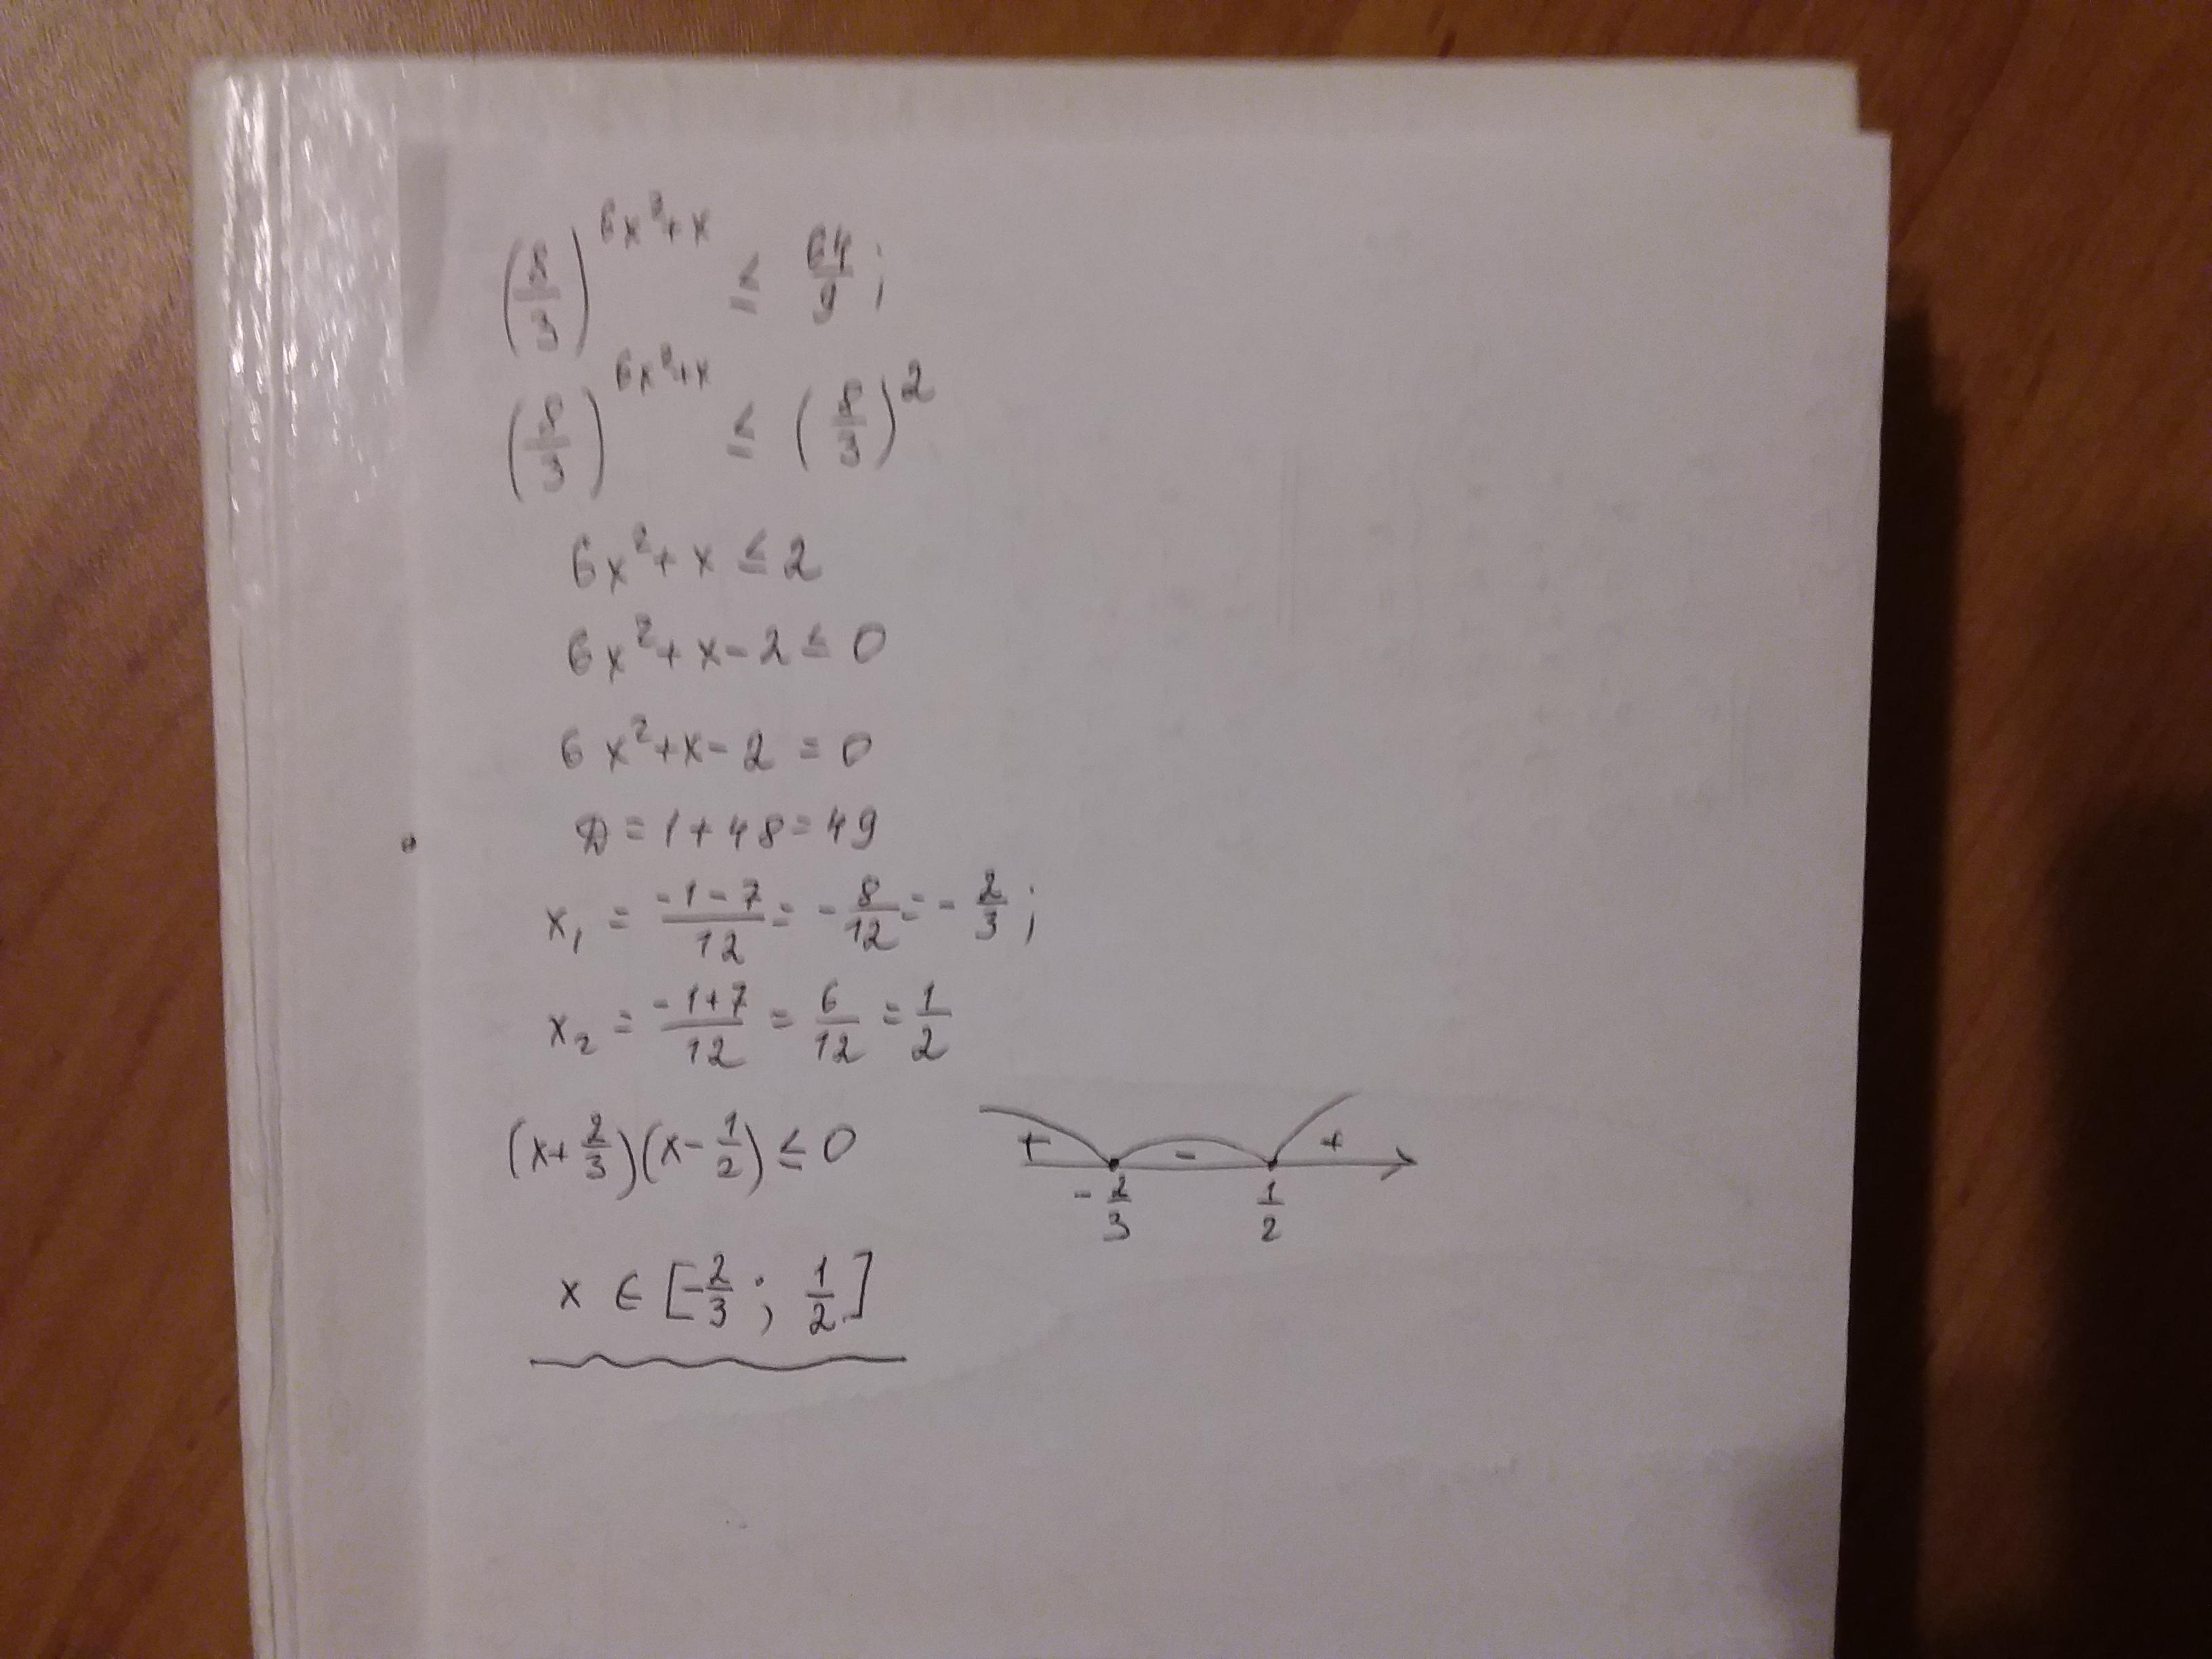 (8/3)^(6x²+x) ≤ 64/9;
(8/3)^(6x²+x) ≤ (8/3)^2
6x²+x ≤ 2
6x²+x-2 ≤ 0
6x²+x-2 = 0
D = 1+48 = 49
x₁ = (-1-7)/12 = -8/12 = -2/3;
x₂ = (-1+7)/12 = 6/12 = 1/2
(x+2/3)(x-1/2) ≤ 0
+ - +
-2/3 1/2
x ∈ [-2/3; 1/2]